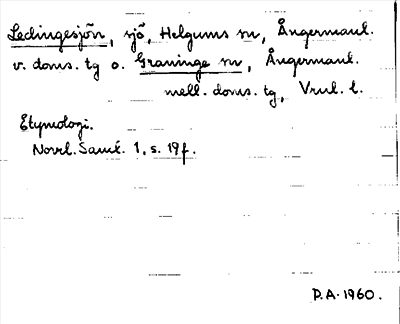 Ledingesjön, sjö, Helgums sn, Ångermanl.
v. doms. tg o. Graninge sn, Ångermanl.
mell. doms. tg, Vnl. l.
Etymologi.
Norrl. Saml. 1, s. 19f.
D.A. 1960.